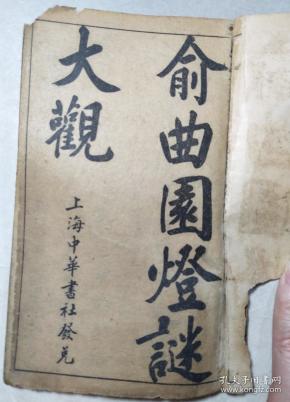 俞曲園燈謎
大觀
上海中華書社發兌
孔夫子旧书网